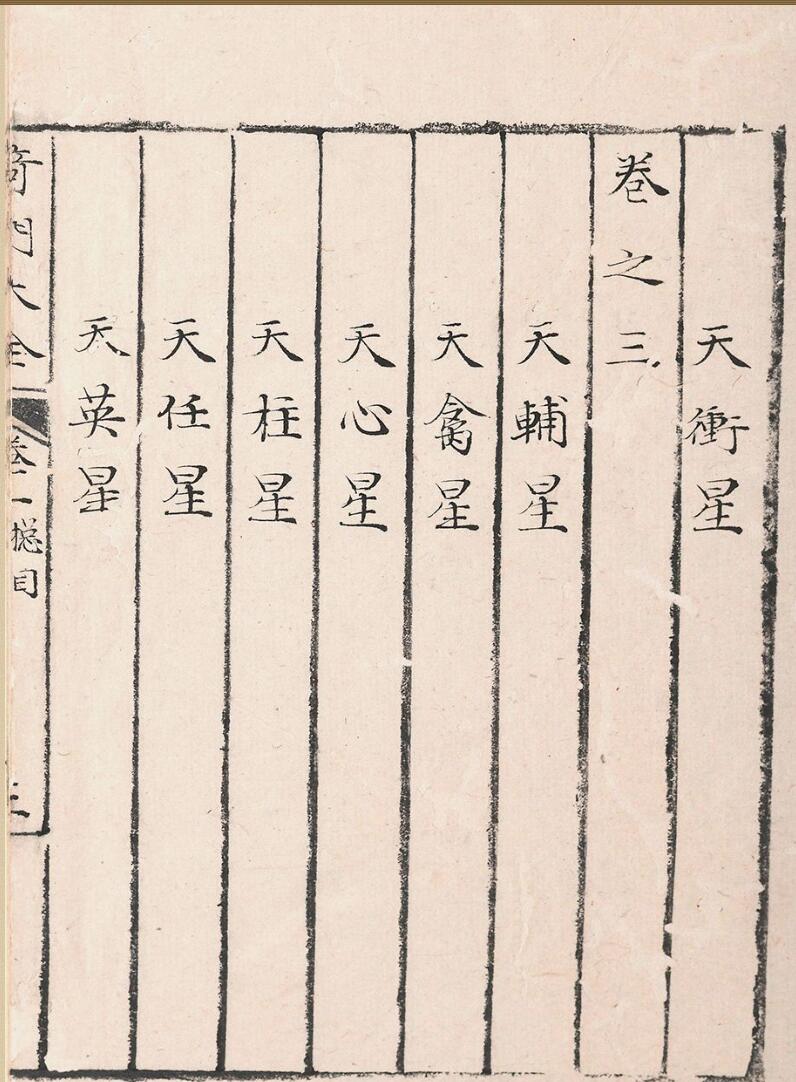 天衝星
卷之三
天輔星
天禽星
天心星
天柱星
天任星
天英星
奇門大全
卷一總目
三